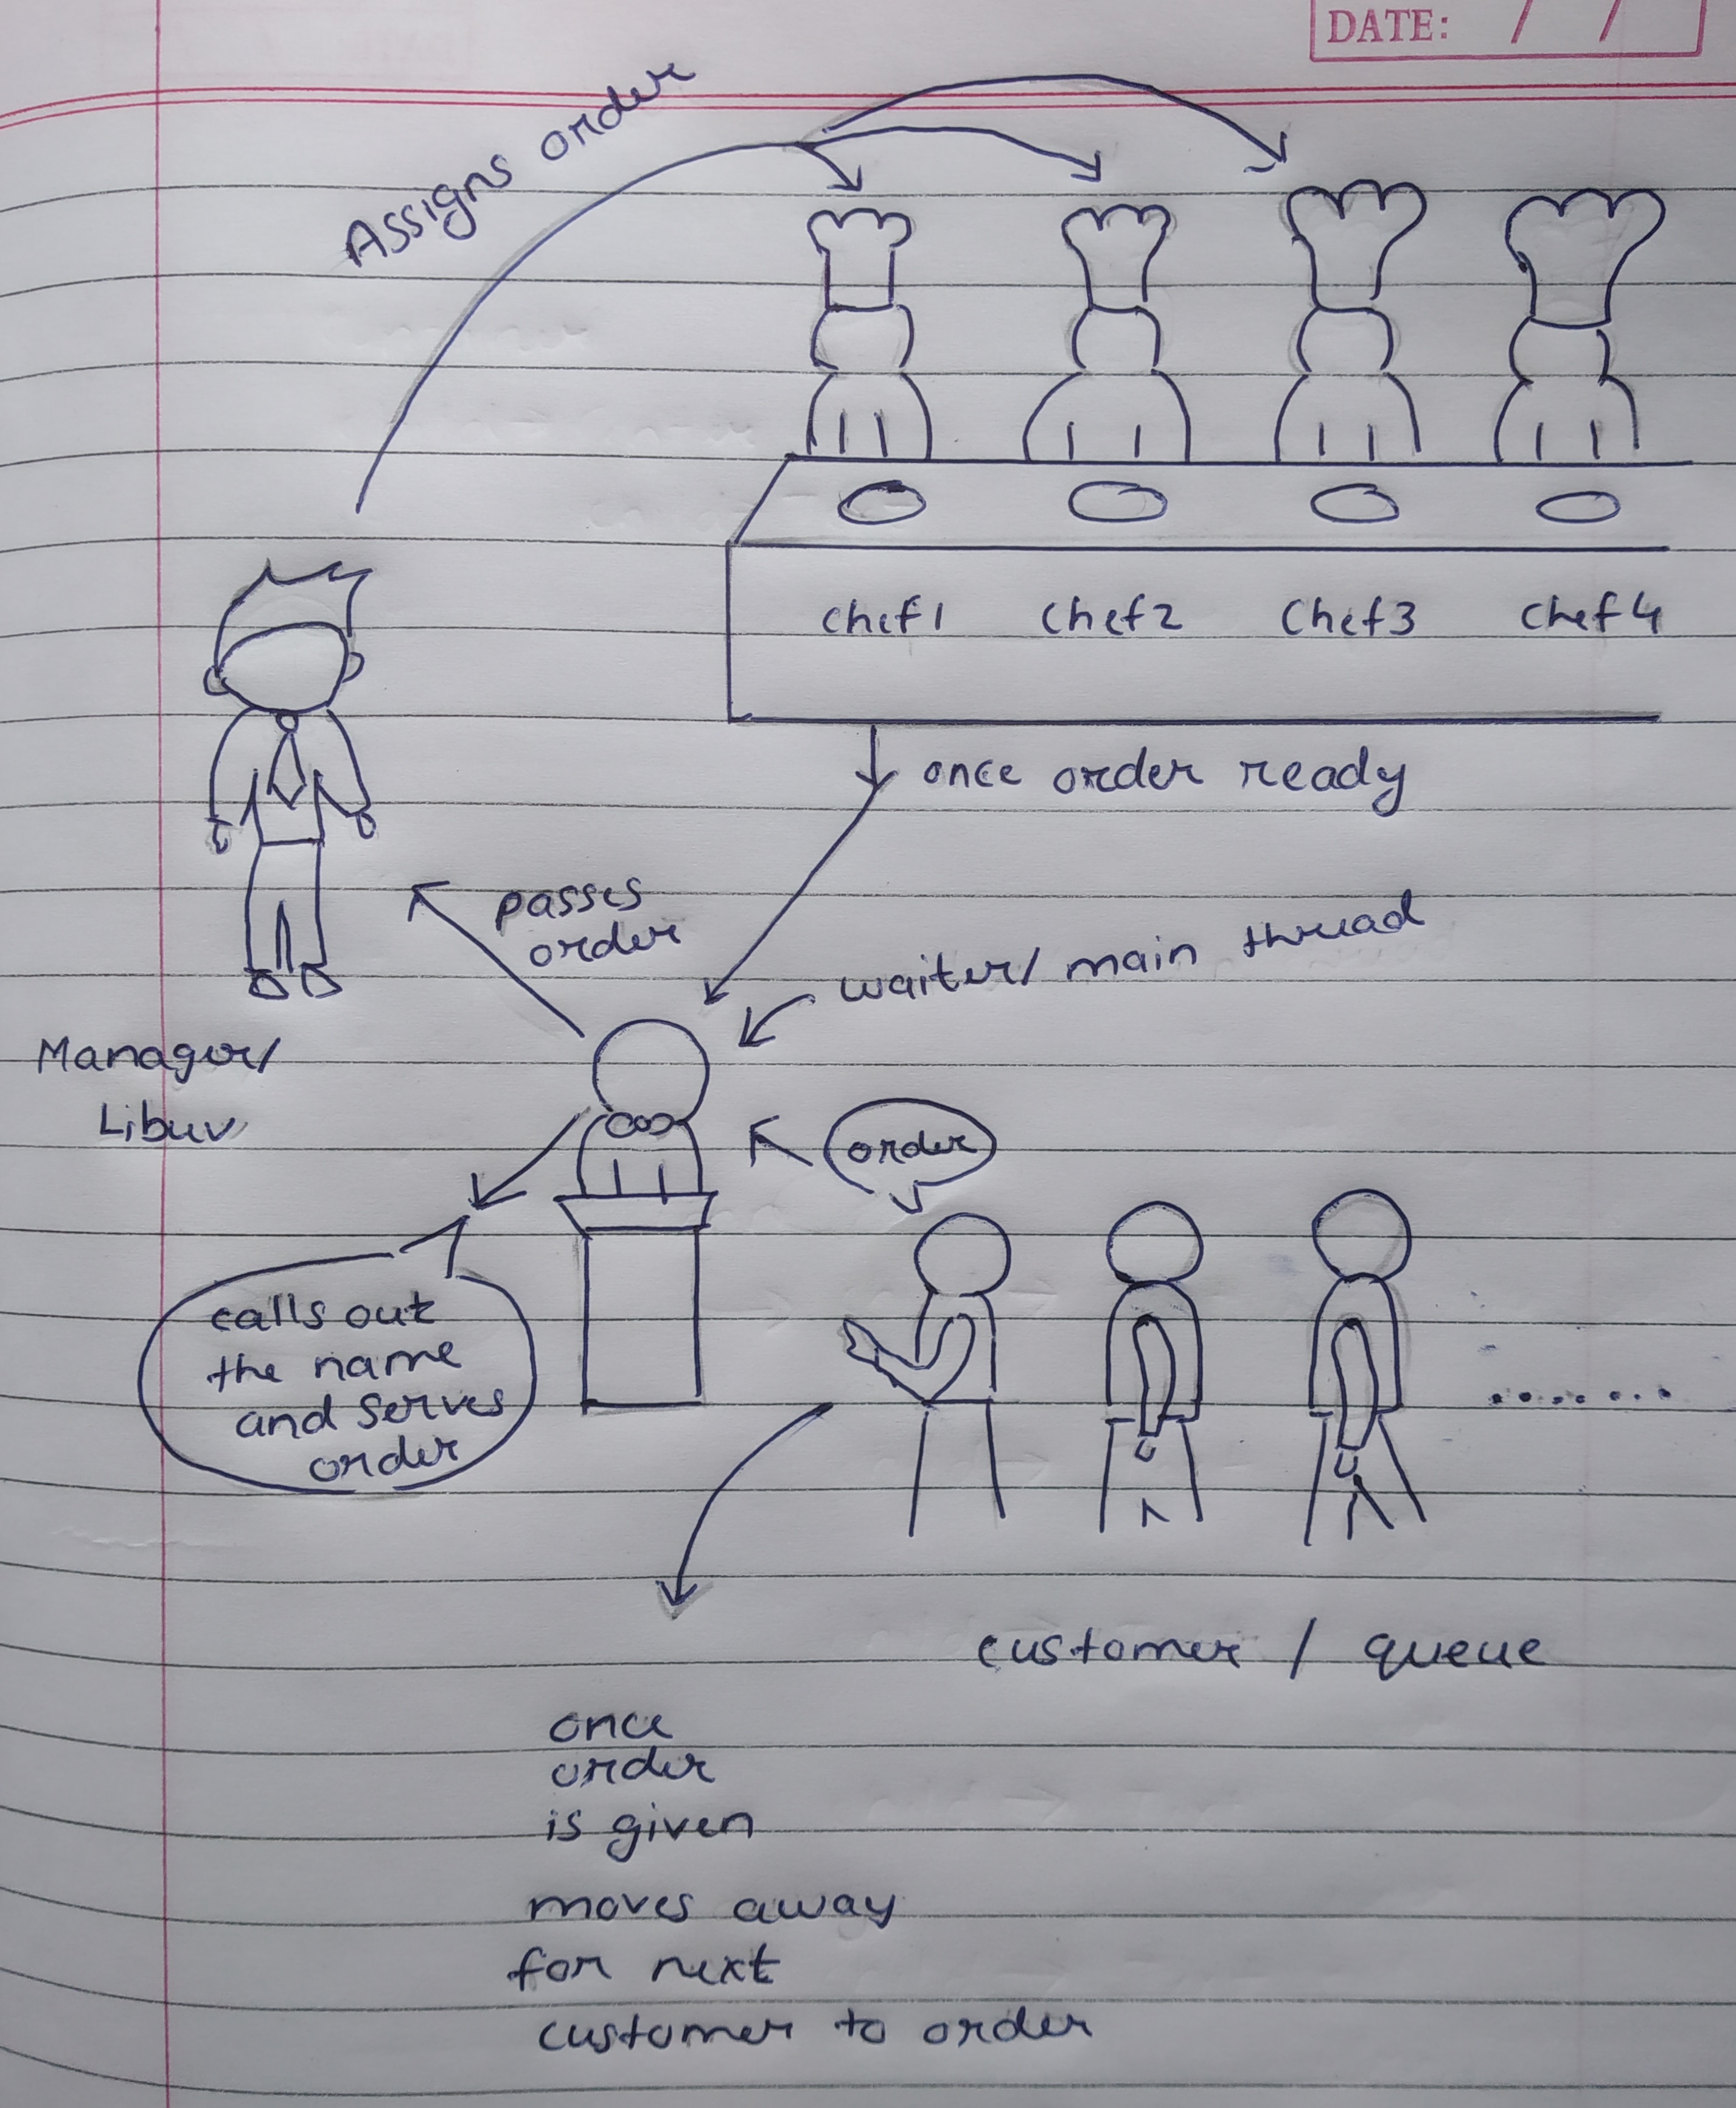 DATE: / /
Assigns order
chef1 chef2 chef3 chef4
once order ready
passes
order
waiter/ main thread
Manager/
Libuv
order
calls out
the name
and serves
order
customer / queue
once
order
is given
moves away
for next
customer to order